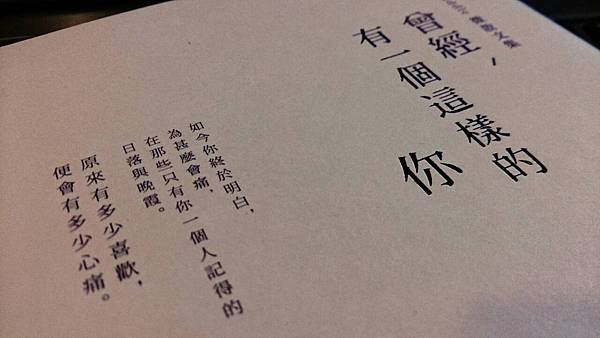 曾經，
有一個這樣的
你
如今你終於明白，
為甚麼會痛，
在那些只有你一個人記得的
日落與晚霞。
原來有多少喜歡，
便會有多少心痛。